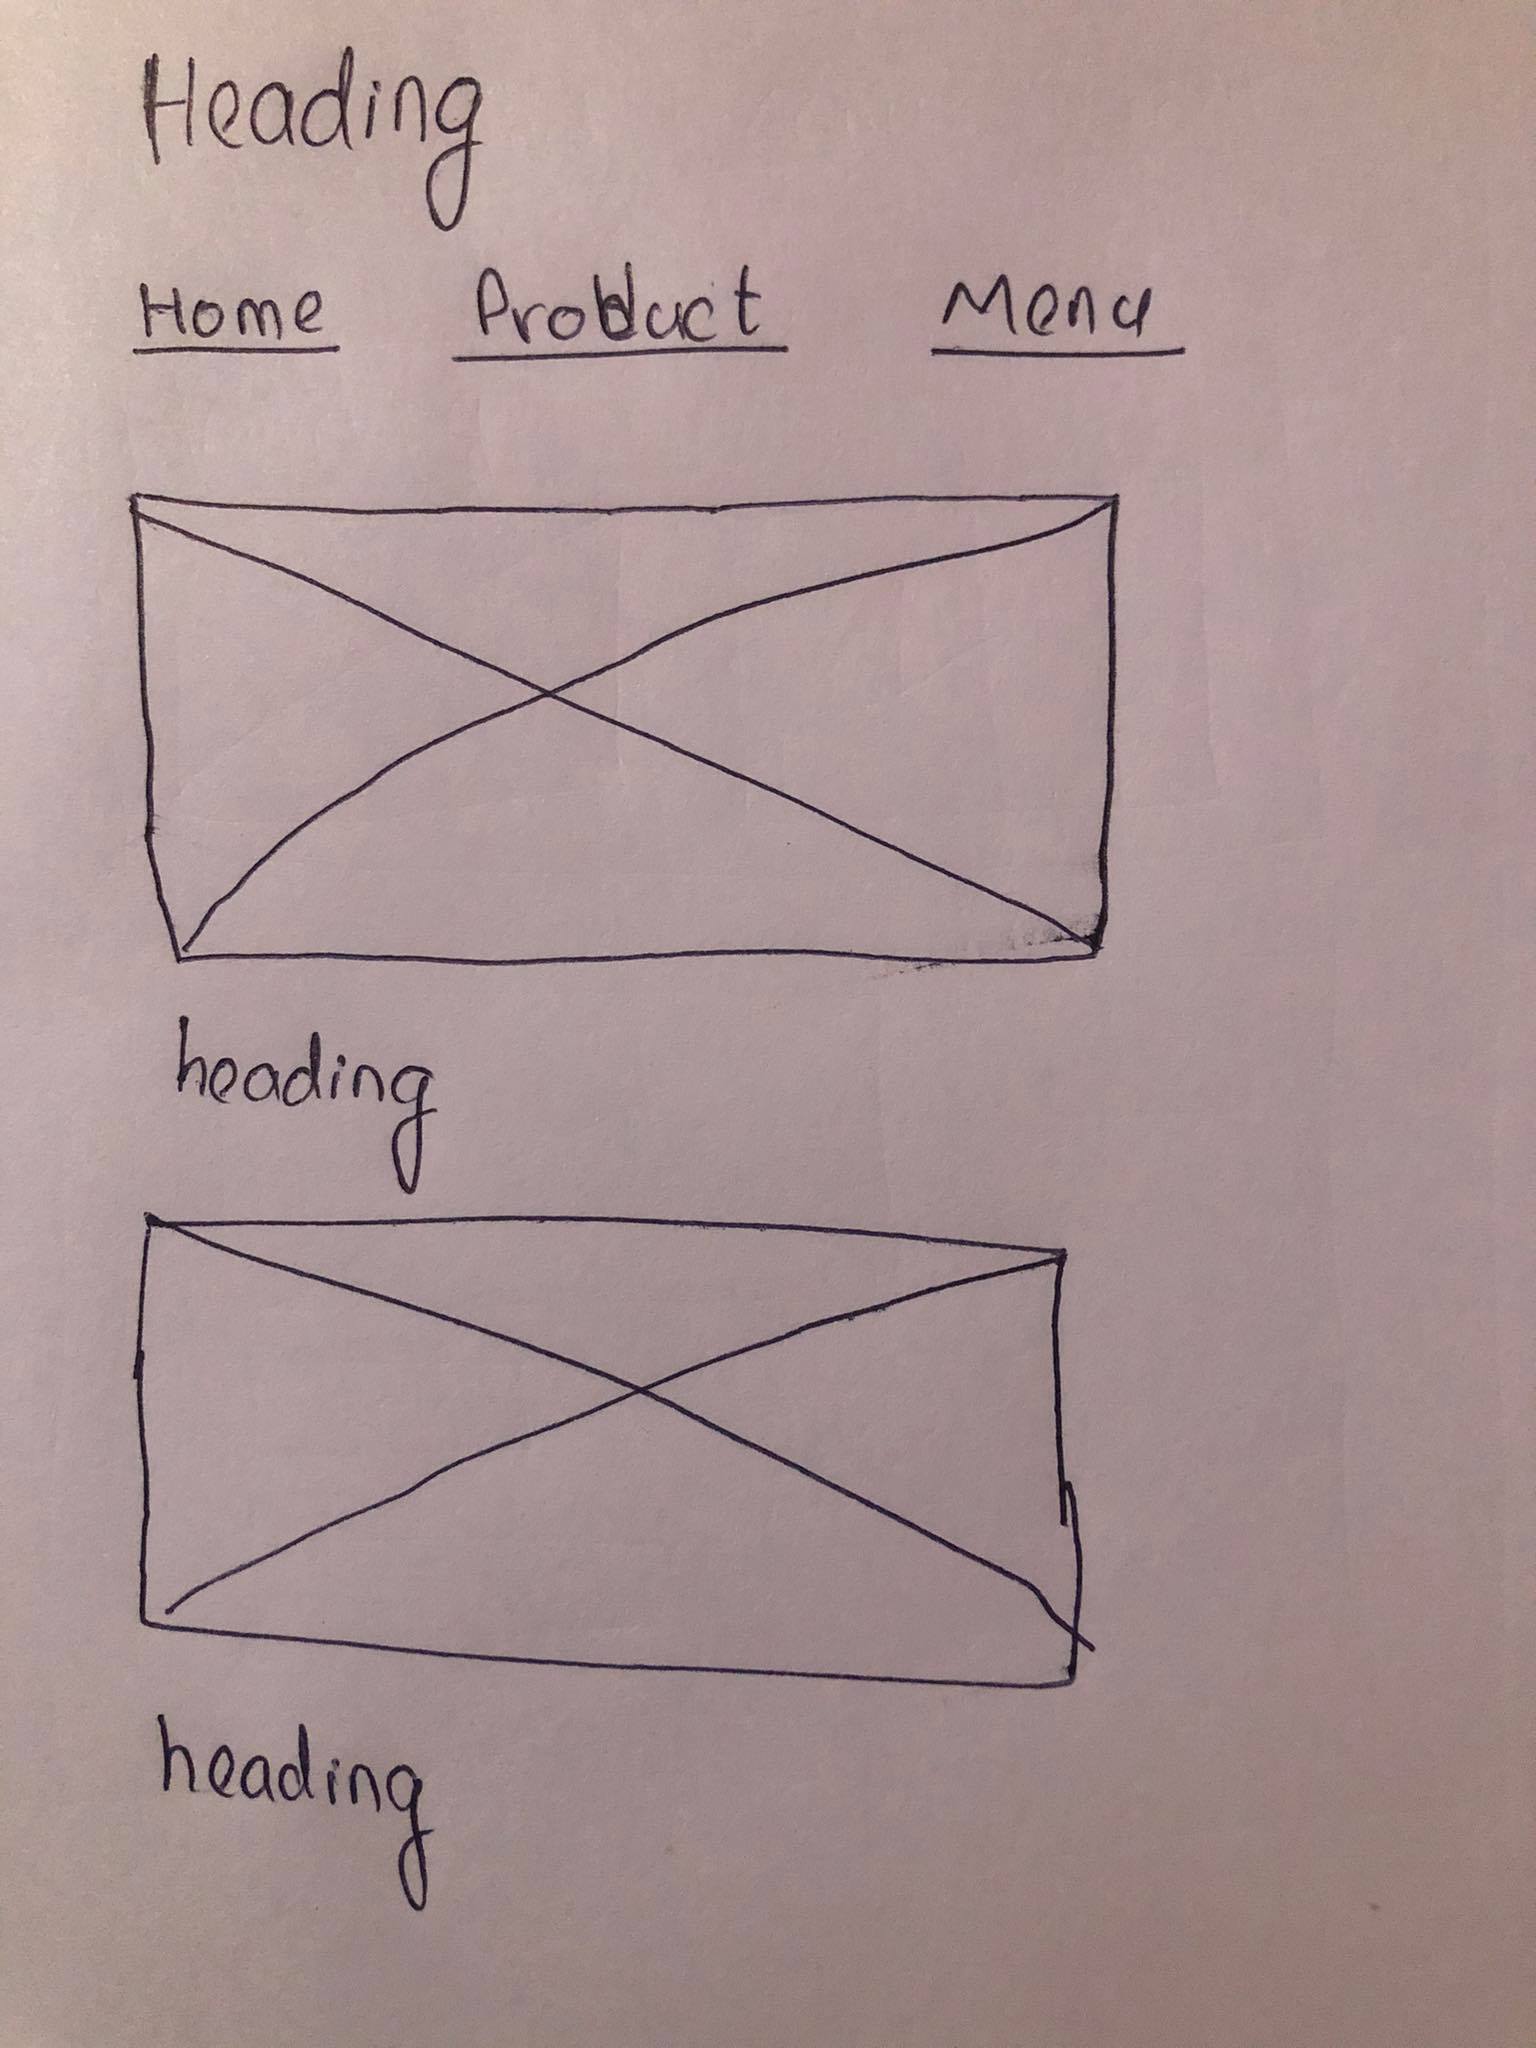 Heading
Home Product Menu
heading
heading